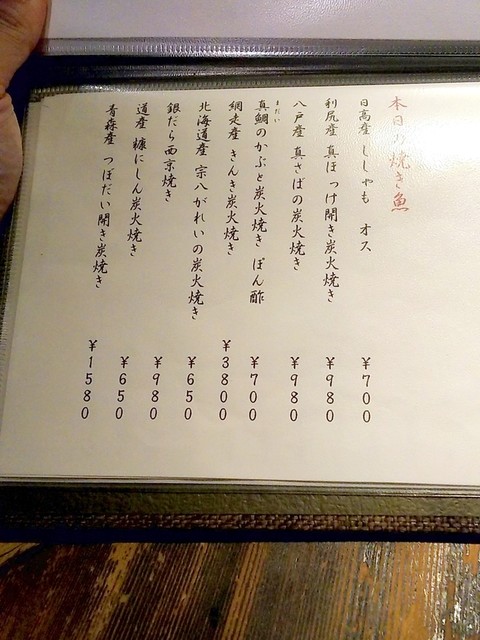 本日の焼き魚
日高産 ししゃも オス ¥700
利尻産 真ほっけ開き炭火焼き ¥980
八戸産 真さばの炭火焼き ¥980
まだい
真鯛のかぶと炭火焼き ぽん酢 ¥700
網走産 きんき炭火焼き ¥3800
北海道産 宗八がれいの炭火焼き ¥650
銀だら西京焼き ¥980
道産 糠にしん炭火焼き ¥650
青森産 つぼだい開き炭焼き ¥1580